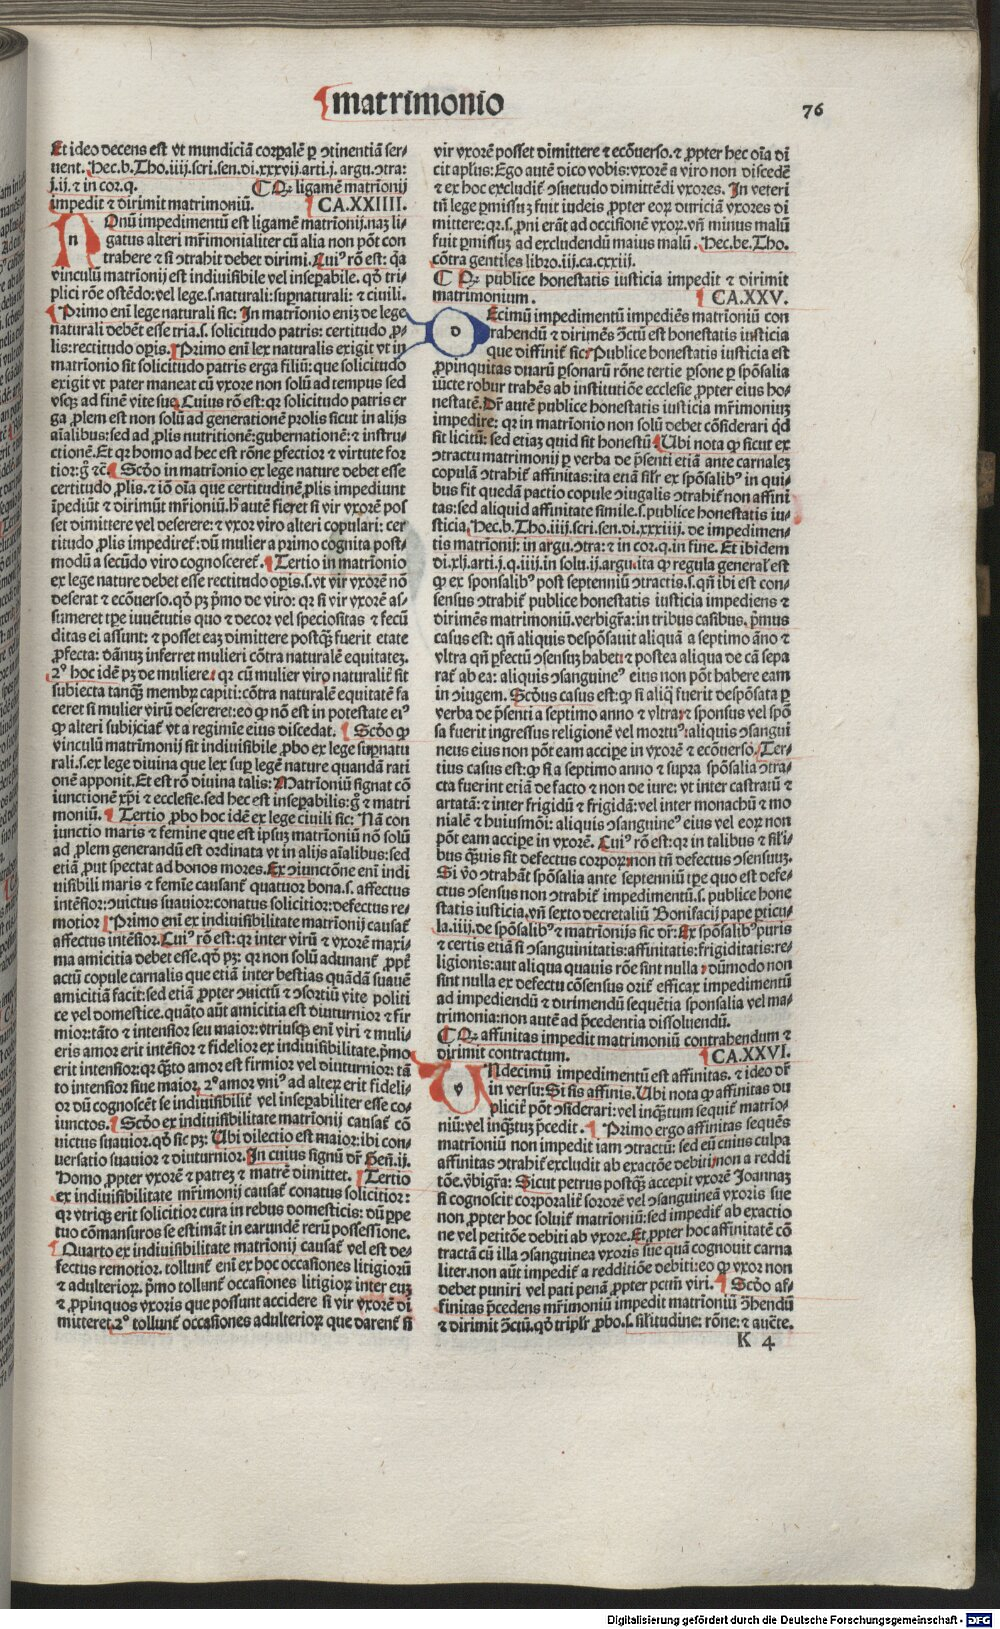 ¶matrimonio
76
Et ideo decens est vt mundiciā corꝑalē ꝑ ↄtinentiā ser-
uent. Hec.b.Tho.iiij.scri.sen.di.xxxvij.arti.j.argu.ↄtra:
j.ij.⁊ in cor.q. ¶ Qꝫ ligamē matrīonij
impedit ⁊ dirimit matrimoniū. ¶ CA.XXIIII.
n Onū impedimentū est ligamē matrīonij.naꝫ li-
gatus alteri mr̄imonialiter cū alia non pōt con
trahere ⁊ si ↄtrahit debet dirimi. Cuiꝰ rō est: q̄a
vinculū matrīonij est indiuisibile vel inseꝑabile. qd̄ tri-
plici rōne ostēdo: vel lege.s.naturali: supnaturali: ⁊ ciuili.
¶ Primo enī lege naturali sic: In matrīonio enīꝫ de lege
naturali debēt esse tria.s. solicitudo patris: certitudo ꝓ-
lis: rectitudo oꝑis. ¶ Primo enī lex naturalis exigit vt in
matrīonio sit solicitudo patris erga filiū: que solicitudo
exigit vt pater maneat cū vxore non solū ad tempus sed
vsqꝫ ad finē vite sue. Cuius rō est: qꝛ solicitudo patris er
ga ꝓlem est non solū ad generationē prolis sicut in alijs
aīalibus: sed ad ꝓlis nutritionē: gubernationē: ⁊ instru-
ctionē. Et qꝛ homo ad hec est rōne ꝑfectior ⁊ virtute for
tior: g̊ ⁊c̄. ¶ Scd̄o in matrīonio ex lege nature debet esse
certitudo ꝓlis. ⁊ iō oīa que certitudinē ꝓlis impediunt
īpediūt ⁊ dirimūt mr̄ioniū. h̄ autē fieret si vir vxorē pos
set dimittere vel deserere: ⁊ vxor viro alteri copulari: cer
titudo ꝓlis impediret̄: dū mulier a primo cognita post-
modū a secūdo viro cognosceret̄. ¶ Tertio in matrīonio
ex lege nature debet esse rectitudo oꝑis.s. vt vir vxorē nō
deserat ⁊ ecōuerso. qd̄ pꝫ p̄mo de viro: qꝛ si vir vxorē as-
sumeret tꝑe iuuētutis quo ⁊ decor vel speciositas ⁊ fecū
ditas ei assunt: ⁊ posset eaꝫ dimittere postqꝫ fuerit etate
ꝓfecta: dānuꝫ inferret mulieri cōtra naturalē equitateꝫ.
2º hoc idē pꝫ de muliere: qꝛ cū mulier viro naturalit̄ sit
subiecta tanqꝫ membꝝ capiti: cōtra naturalē equitatē fa
ceret si mulier virū desereret: eo ꝙ nō est in potestate eiꝰ
ꝙ alteri subijciat̄ vt a regimīe eius discedat. ¶ Scd̄o ꝙ
vinculū matrīonij sit indiuisibile ꝓbo ex lege supnatu
rali.s.ex lege diuina que lex suꝑ legē nature quandā rati
onē apponit. Et est rō diuina talis: Matrīoniū signat cō
iunctionē xp̄i ⁊ ecclesie. sed hec est inseꝑabilis: g̊ ⁊ matri
moniū. ¶ Tertio ꝓbo hoc idē ex lege ciuili sic: Nā con
iunctio maris ⁊ femine que est ipsuꝫ matrīoniū nō solū
ad ꝓlem generandū est ordinata vt in alijs aīalibus: sed
etiā ꝓut spectat ad bonos mores. Ex ↄiunctōne enī indi
uisibili maris ⁊ femīe causant̄ quatuor bona.s. affectus
intēsior: ↄuictus suauior: conatus solicitior: defectus re-
motior ¶ Primo enī ex indiuisibilitate matrīonij causat̄
affectus intēsior. Cuiꝰ rō est: qꝛ inter virū ⁊ vxorē maxi-
ma amicitia debet esse. qd̄ pꝫ: qꝛ non solū adunant̄ ꝓpt̄
actū copule carnalis que etiā inter bestias quādā suauē
amicitiā facit: sed etiā ꝓpter ↄuictū ⁊ ↄsortiū vite politi
ce vel domestice. quāto aūt amicitia est diuturnior ⁊ fir
mior: tāto ⁊ intensior seu maior: vtriusqꝫ enī viri ⁊ muli-
eris amor erit intēsior ⁊ fidelior ex indiuisibilitate. p̄mo
erit intensior: qꝛ q̄to amor est firmior vel diuturnior: tā
to intensior siue maior. 2º amor vniꝰ ad alteꝝ erit fideli-
or dū cognoscēt se indiuisibilit̄ vel inseꝑabiliter esse co-
iunctos. ¶ Scd̄o ex indiuisibilitate matrīonij causat̄ cō
uictus suauior. qd̄ sic pꝫ: Vbi dilectio est maior: ibi con-
uersatio suauior ⁊ diuturnior. In cuius signū dr̄ Gen̄.ij.
Homo ꝓpter vxorē ⁊ patreꝫ ⁊ matrē dimittet. ¶ Tertio
ex indiuisibilitate mr̄imonij causat̄ conatus solicitior:
qꝛ vtriqꝫ erit solicitior cura in rebus domesticis: dū ꝑpe
tuo cōmansuros se estimāt in earundē rerū possessione.
¶ Quarto ex indiuisibilitate matrīonij causat̄ vel est de-
fectus remotior. tollunt̄ enī ex hoc occasiones litigiorū
⁊ adulterioꝝ. p̄mo tollunt̄ occasiones litigioꝝ inter euꝫ
⁊ ꝓpinquos vxoris que possunt accidere si vir vxorē di
mitteret. 2º tollunt̄ occasiones adulterioꝝ que darent̄ si
vir vxorē posset dimittere ⁊ ecōuerso. ⁊ ꝓpter hec oīa di
cit apl̄us: Ego autē dico vobis: vxorē a viro non discedē
⁊ ex hoc excludit̄ ↄsuetudo dimittēdi vxores. In veteri
tn̄ lege ꝑmissuꝫ fuit iudeis ꝓpter eoꝝ duriciā vxores di
mittere: qꝛ.s. ꝓni erāt ad occisionē vxoꝝ. vn̄ minus malū
fuit ꝑmissuꝫ ad excludendū maius malū. Hec.be.Tho.
cōtra gentiles libro.iij.ca.cxxiij.
¶ Qꝫ publice honestatis iusticia impedit ⁊ dirimit
matrimonium. ¶ CA.XXV.
d Ecimū impedimentū impediēs matrīoniū con
rahendū ⁊ dirimēs ↄctū est honestatis iusticia
que diffinit̄ sic: Publice honestatis iusticia est
ꝓpinquitas duarū ꝑsonarū rōne tertie ꝑsone ꝑ spōsalia
iūcte robur trahēs ab institutiōe ecclesie ꝓpter eius ho-
nestatē. Dr̄ autē publice honestatis iusticia mr̄imoniuꝫ
impedire: qꝛ in matrīonio non solū debet cōsiderari qd̄
sit licitū: sed etiaꝫ quid sit honestū. ¶ Vbi nota ꝙ sicut ex
ↄtractu matrimonij ꝑ verba de p̄senti etiā ante carnaleꝫ
copulā ↄtrahit̄ affinitas: ita etiā sil̄r ex spōsalibꝰ in qui-
bus fit quedā pactio copule ↄiugalis ↄtrahit̄ non affini
tas: sed aliquid affinitate simile.s. publice honestatis iu-
sticia. Hec.b.Tho.iiij.scri.sen.di.xxxiiij. de impedimen-
tis matrīonij: in argu.ↄtra: ⁊ in cor.q.in fine. Et ibidem
di.xlj.arti.j.q.iiij.in solu.ij.argu. ita ꝙ regula general̄ est
ꝙ ex sponsalibꝰ post septenniū ↄtractis.s.qn̄ ibi est con-
sensus ↄtrahit̄ publice honestatis iusticia impediens ⁊
dirimēs matrimoniū. verbigr̄a: in tribus casibus. p̄mus
casus est: qn̄ aliquis despōsauit aliquā a septimo āno ⁊
vltra qn̄ ꝑfectū ↄsensuꝫ habet: ⁊ postea aliqua de cā sepa
rat̄ ab ea: aliquis ↄsanguineꝰ eius non pōt habere eam
in ↄiugem. Scd̄us casus est: ꝙ si aliq̄ fuerit despōsata ꝑ
verba de p̄senti a septimo anno ⁊ vltra: ⁊ sponsus vel spō
sa fuerit ingressus religionē vel mortuꝰ: aliquis ↄsangui
neus eius non pōt eam accipe in vxorē ⁊ ecōuerso. Ter-
tius casus est: ꝙ si a septimo anno ⁊ supra spōsalia ↄtra-
cta fuerint etiā de facto ⁊ non de iure: vt inter castratū ⁊
artatā: ⁊ inter frigidū ⁊ frigidā: vel inter monachū ⁊ mo
nialē ⁊ huiusmōi: aliquis ↄsanguineꝰ eius vel eoꝝ non
pōt eam accipe in vxorē. Cuiꝰ rō est: qꝛ in talibus ⁊ sil̄i-
bus q̄uis sit defectus corporꝫ non tn̄ defectus ↄsensuuꝫ.
Si v̄o ↄtrahāt spōsalia ante septenniū tꝑe quo est defe-
ctus ↄsensus non ↄtrahit̄ impedimentū.s. publice hone
statis iusticia. vn̄ sexto decretaliū Bonifacij pape ꝑticu-
la.iiij.de spōsalibꝰ ⁊ matrīonijs sic dr̄: Ex spōsalibꝰ puris
⁊ certis etiā si ↄsanguinitatis: affinitatis: frigiditatis: re-
ligionis: aut aliqua quauis rōe sint nulla: dūmodo non
sint nulla ex defectu cōsensus orit̄ efficax impedimentū
ad impediendū ⁊ dirimendū sequētia sponsalia vel ma-
trimonia: non autē ad p̄cedentia dissoluendū.
¶ Qꝫ affinitas impedit matrimoniū contrahendum ⁊
dirimit contractum. ¶ CA.XXVI.
v Ndecimū impedimentū est affinitas. ⁊ ideo dr̄
in versu: Si sis affinis. Vbi nota ꝙ affinitas du
plicit̄ pōt ↄsiderari: vel inq̄tum sequit̄ matrīo-
niū: vel inq̄tuꝫ p̄cedit. ¶ Primo ergo affinitas sequēs
matrīoniū non impedit iam ↄtractū: sed eū cuius culpa
affinitas ↄtrahit̄ excludit ab exactōe debiti: non a reddi
tōe. v̄bigr̄a: Sicut petrus postqꝫ accepit vxorē Joannaꝫ
si cognoscit corporalit̄ sororē vel ↄsanguineā vxoris sue
non ꝓpter hoc soluit̄ matrīoniū: sed impedit̄ ab exactio
ne vel petitōe debiti ab vxore. Et ꝓpter hoc affinitatē cō
tractā cū illa ↄsanguinea vxoris sue quā cognouit carna
liter. non aūt impedit̄ a redditiōe debiti: eo ꝙ vxor non
debet puniri vel pati penā ꝓpter pctm̄ viri. ¶ Scd̄o af-
finitas p̄cedens mr̄imoniū impedit matrīoniū ↄ̄hendū
⁊ dirimit ↄctū. qd̄ tripl̄r ꝓbo.s. sil̄itudine: rōne: ⁊ auc̄te.
K 4
Digitalisierung gefördert durch die Deutsche Forschungsgemeinschaft - DFG